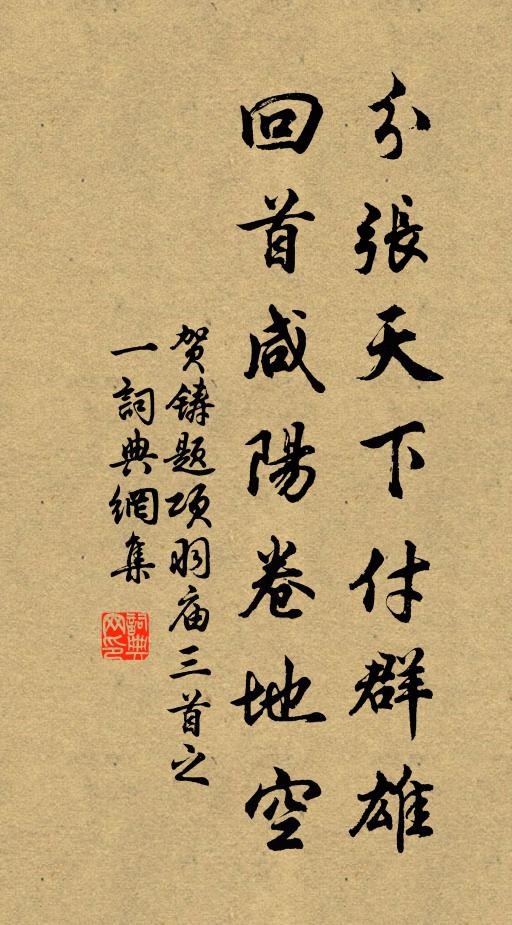 分張天下付群雄
回首咸陽卷地空
贺鑄题项羽庙三首之
一詞典網集
詞典网印